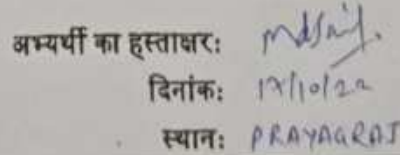 अभ्यर्थी का हस्ताक्षर: Mdsaif.
दिनांक: 17/10/22
स्थान: PRAYAGRAJ